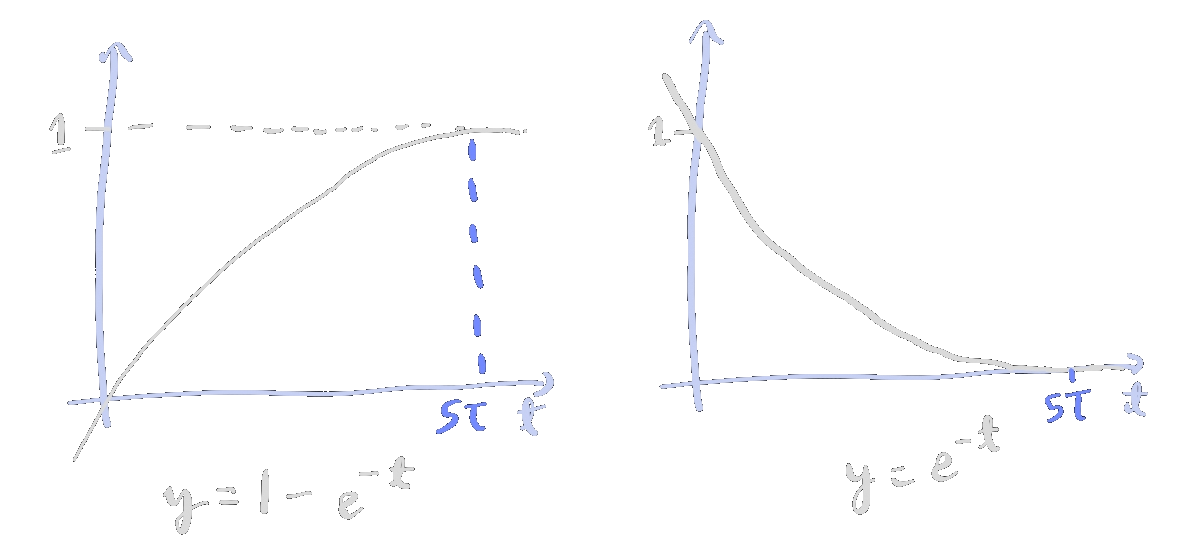 1
5τ t
y = 1 - e^-t
1
5τ t
y = e^-t